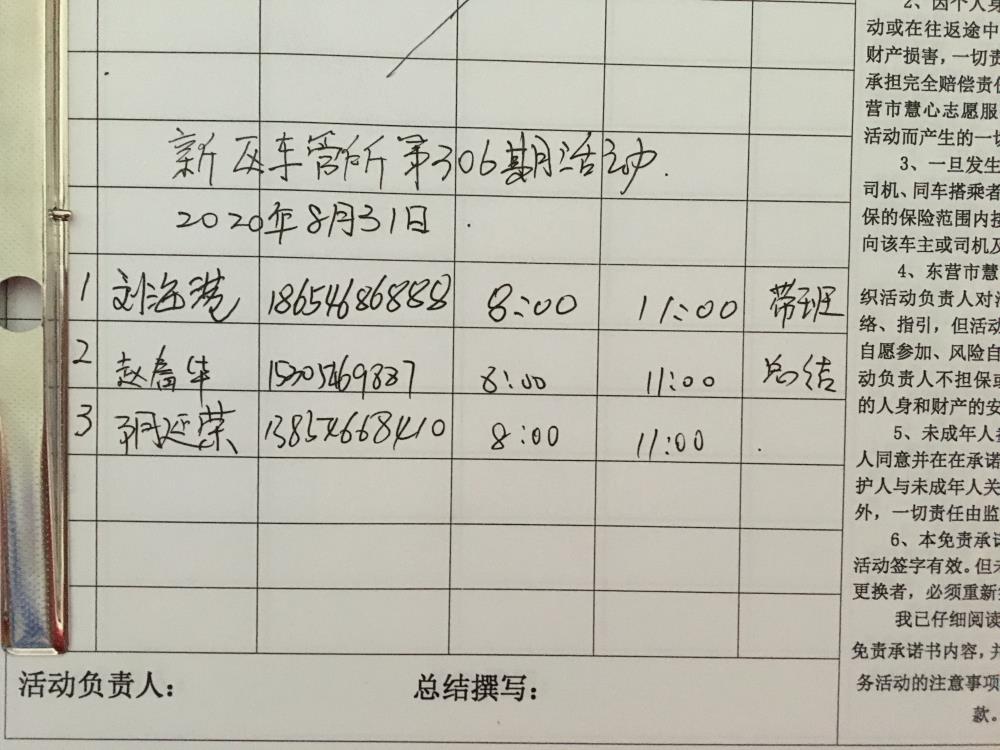 新区车管所第306期活动.
2020年8月31日.
1 刘海港 18654686888 8:00 11:00 带班
2 赵富华 8:00 11:00 总结
3 阴延荣 13854668410 8:00 11:00
活动负责人: 总结撰写:
2、因个人身
动或在往返途中
财产损害,一切责
承担完全赔偿责任
营市慧心志愿服
活动而产生的一切
3、一旦发生
司机、同车搭乘者
保的保险范围内按
向该车主或司机及
4、东营市慧
织活动负责人对活
络、指引,但活动
自愿参加、风险自
动负责人不担保或
的人身和财产的安
5、未成年人参
人同意并在在承诺
护人与未成年人关
外,一切责任由监
6、本免责承诺
活动签字有效。但未
更换者,必须重新
我已仔细阅读
免责承诺书内容,并
务活动的注意事项
款。